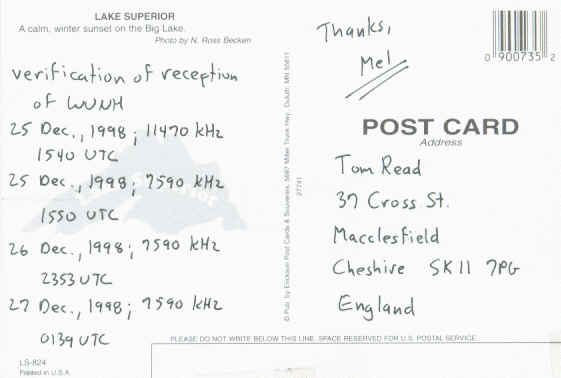 LAKE SUPERIOR
A calm, winter sunset on the Big Lake.
Photo by N. Ross Becken
verification of reception
of WUNH
25 Dec., 1998; 11470 kHz
1540 UTC
25 Dec., 1998; 7590 kHz
1550 UTC
26 Dec., 1998; 7590 kHz
2353 UTC
27 Dec., 1998; 7590 kHz
0139 UTC
LS-824
Printed in U.S.A.
© Pub. by Erickson Post Cards & Souvenirs, 5697 Miller Trunk Hwy., Duluth, MN 55811
27741
Thanks,
Mel
0 900735 2
POST CARD
Address
Tom Read
37 Cross St.
Macclesfield
Cheshire SK11 7PG
England
PLEASE DO NOT WRITE BELOW THIS LINE. SPACE RESERVED FOR U.S. POSTAL SERVICE